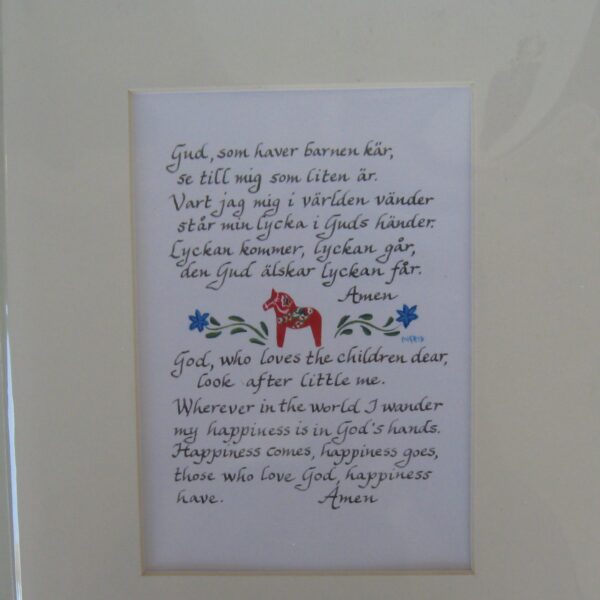 Gud, som haver barnen kär,
se till mig som liten är.
Vart jag mig i världen vänder
står min lycka i Guds händer.
Lyckan kommer, lyckan går,
den Gud älskar lyckan får.
Amen
God, who loves the children dear,
look after little me.
Wherever in the world I wander
my happiness is in God's hands.
Happiness comes, happiness goes,
those who love God, happiness
have. Amen